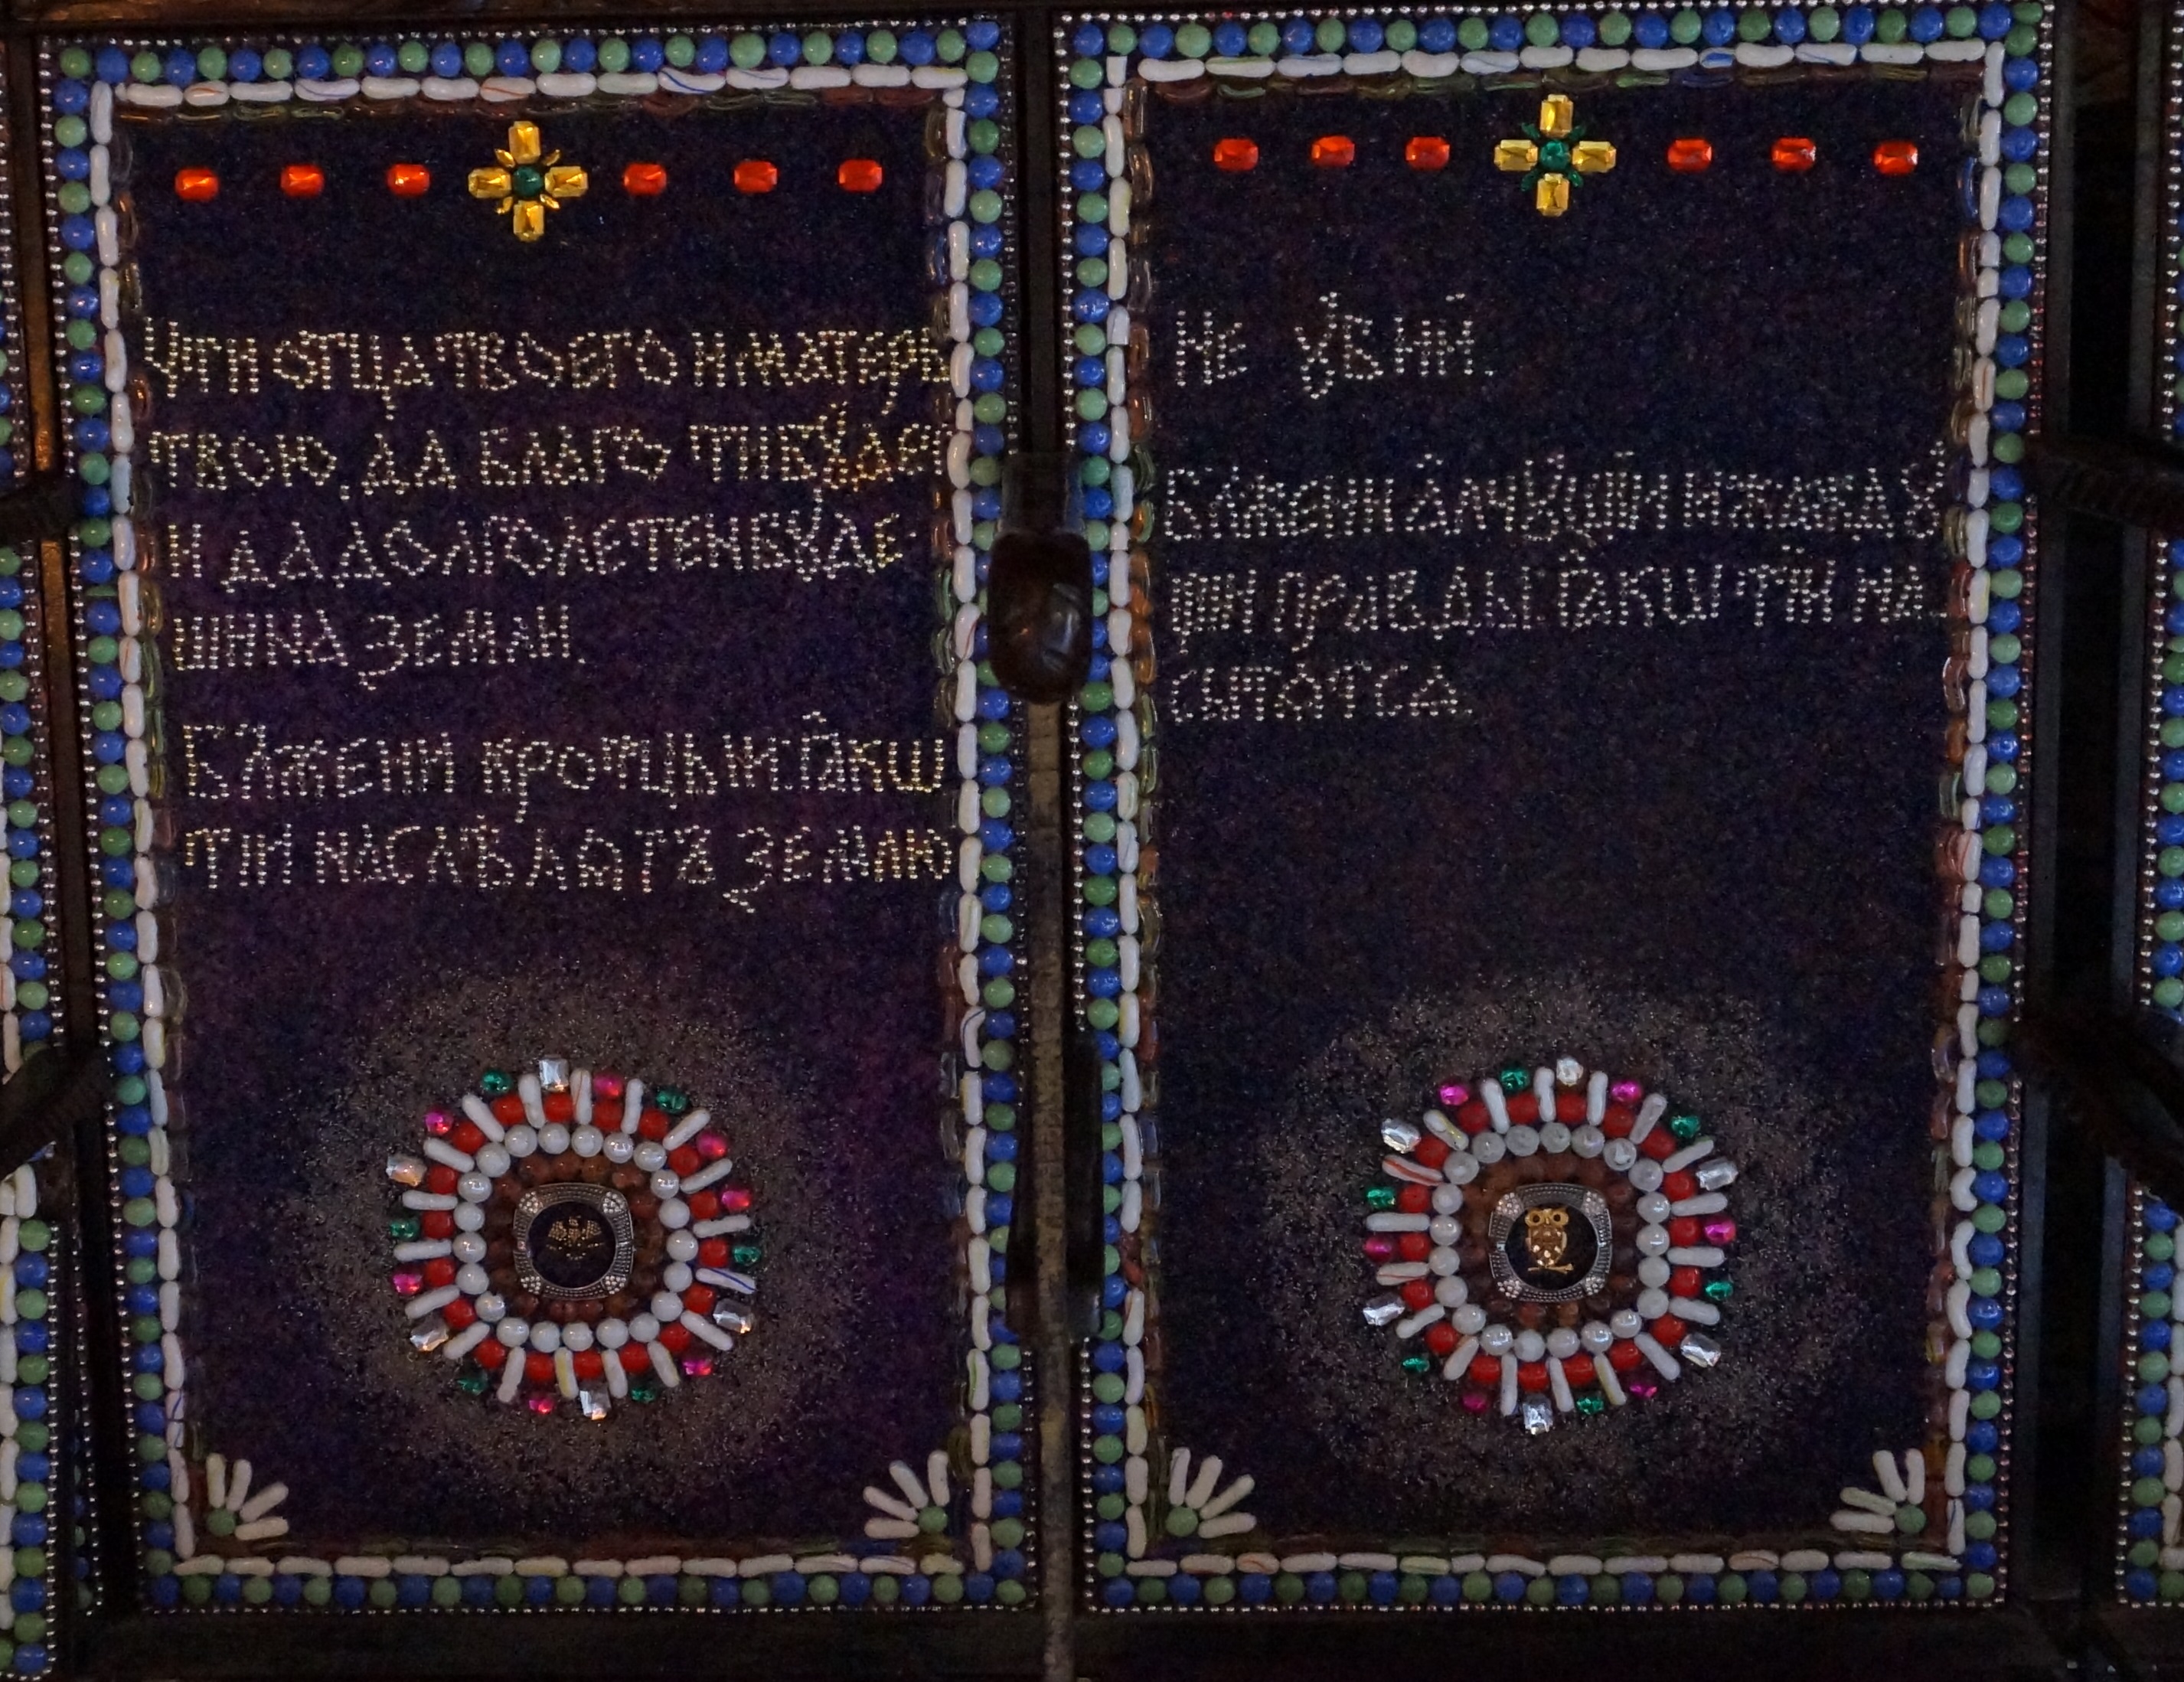 Чти отца твоего и матерь
твою, да благо ти буде
и да долголетен буде
ши на земли.
Бл҃жени кротцыи: ꙗкѡ
тїи наслѣдѧтъ землю
Не ᲂу҆бїй.
Бл҃жени а҆лчꙋщїи и жаждꙋ
щїи правды ꙗкѡ тїи на
сытѧтсѧ.